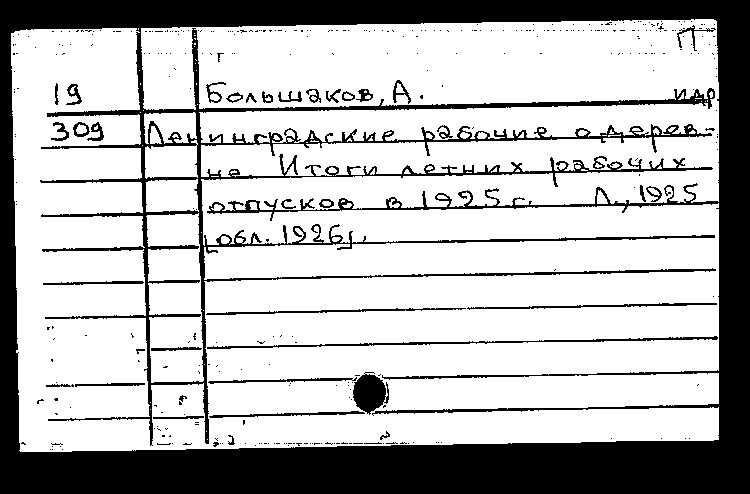 П
19 Большаков, А. и др.
309 Ленинградские рабочие о дерев-
не. Итоги летних рабочих
отпусков в 1925 г. Л., 1925
[обл. 1926].